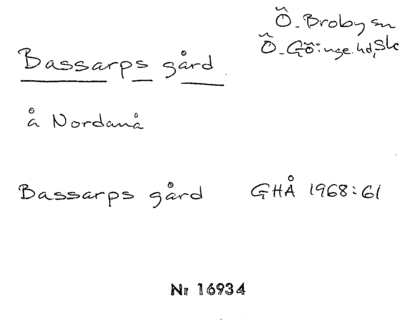 Ö. Broby sn
Ö. Göinge hd, Sk
Bassarps gård
å Nordanå
Bassarps gård GHÅ 1968:61
Nr 16934